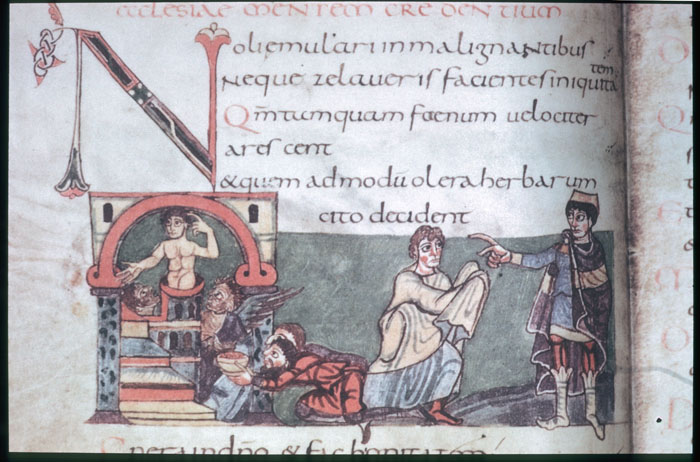 ecclesiae mentem credentium
Noli emulari in malignantibus
neque zelaveris facientes iniquitatem
Qm̄ tamquam faenum velociter
arescent
& quem ad modū olera herbarum
cito decident
& fac bonitatem